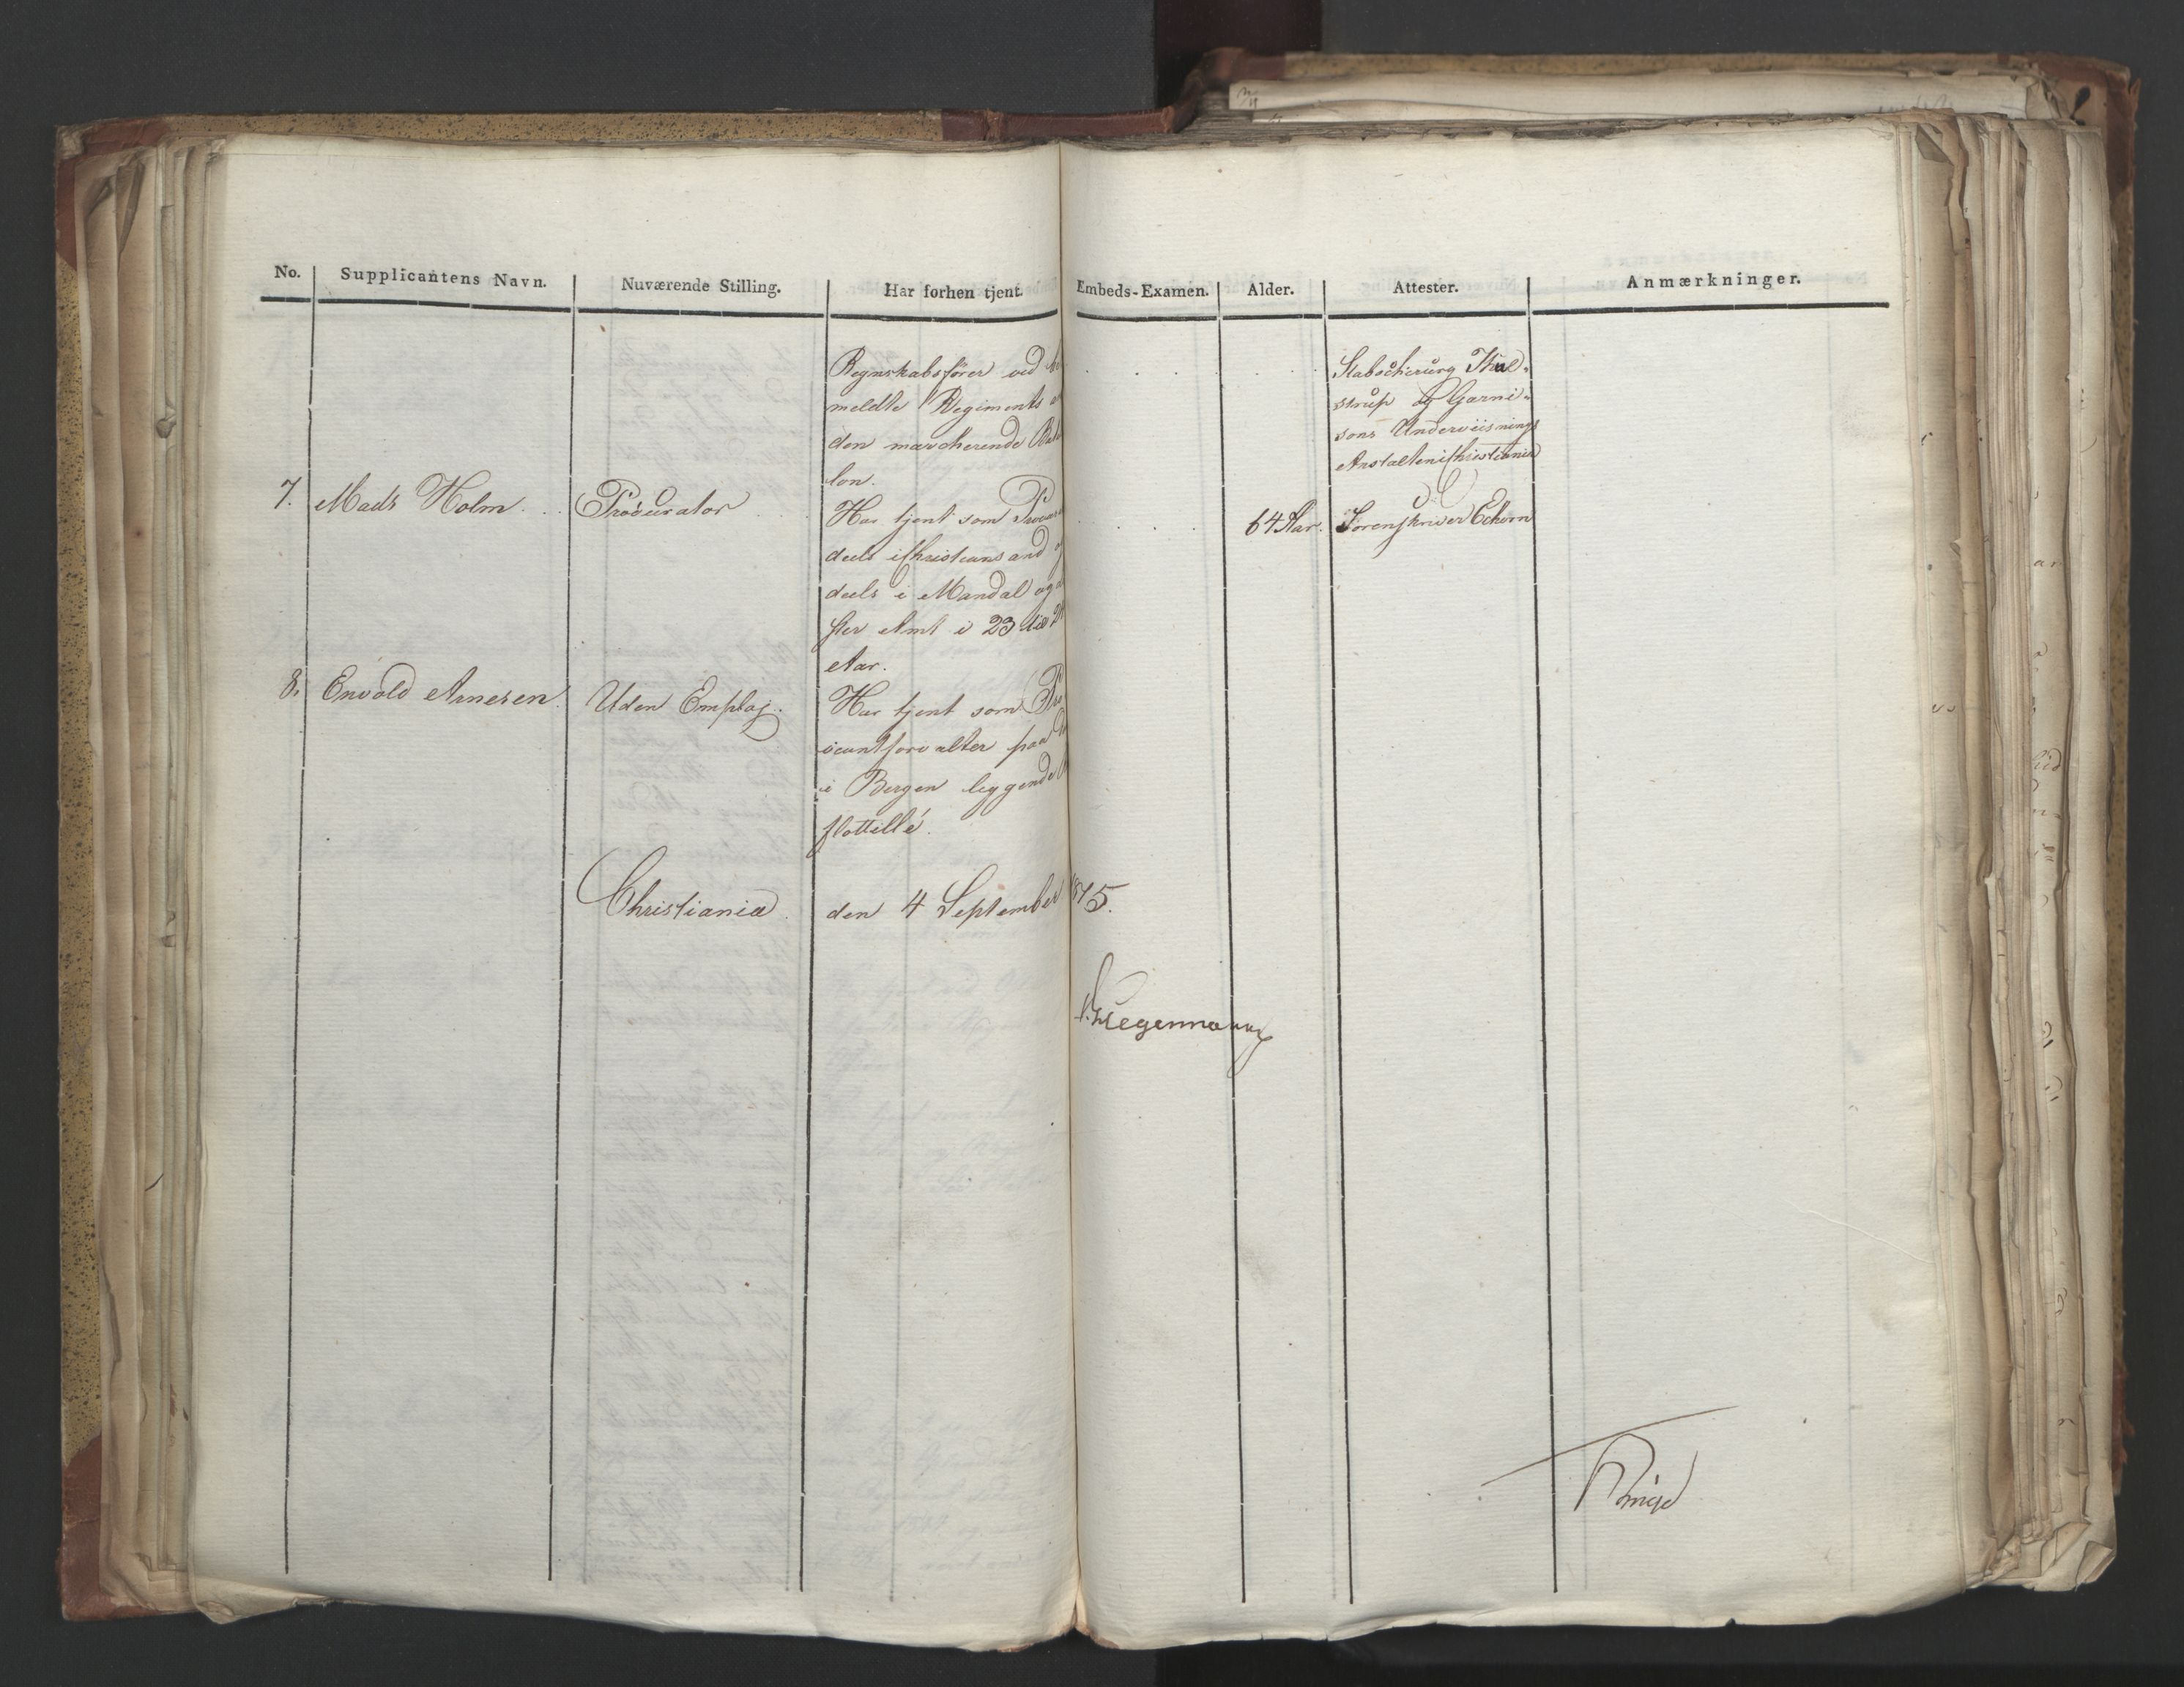 No.
Supplicantens Navn.
Nuværende Stilling.
Har forhen tjent.
Embeds-Examen.
Alder.
Attester.
Anmærkninger.
Regnskabsfører ved
meldte Regiments
den marcherende
lon.
Stabschirurg Thul-
strup og Garni-
sons Underviisnings
Anstalten i Christiania
7.
Mads Holm
Procurator
Har tjent som
deels i Christiansand
deels i Mandal og
ster Amt i 23 til
Aar.
64 Aar.
Sorenskriver Eckorn
8.
Envold Arnesen
Uden Emploj.
Har tjent som Pro
viantforvalter paa
i Bergen liggende
flottille.
Christiania
den 4 September 1815.